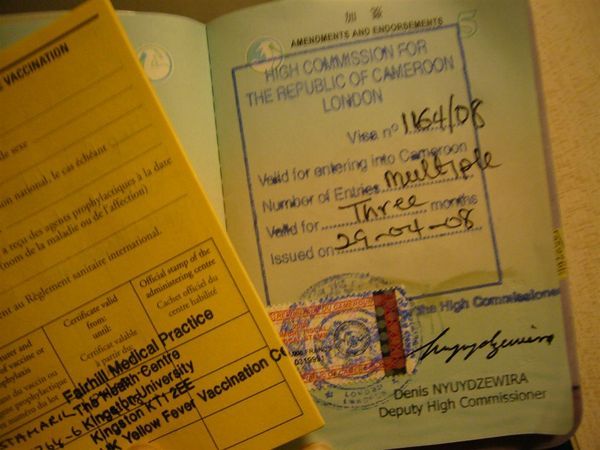 VACCINATION
de sexe
national, le cas échéant
a reçu des agents prophylactiques à la date
(nom de la maladie ou de l'affection)
au Règlement sanitaire international.
Certificate valid
from:
until:
Certificat valable
à partir du:
Official stamp of the
administering centre
Cachet officiel du
centre habilité
Fairhill Medical Practice
The Health Centre
Kingston University
Kingston KT1 2EE
UK Yellow Fever Vaccination
加 簽
AMENDMENTS AND ENDORSEMENTS
5
HIGH COMMISSION FOR
THE REPUBLIC OF CAMEROON
LONDON
Visa nº 1164/08
Valid for entering into Cameroon
Number of Entries multiple
Valid for Three months
Issued on 29-04-08
the High Commissioner
Denis NYUYDZEWIRA
Deputy High Commissioner